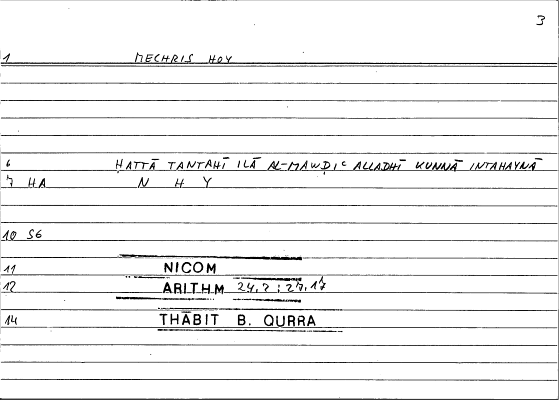 3
1 MECHRIS HOY
6 ḤATTĀ TANTAHĪ ILĀ AL-MAWḌIᶜ ALLADHĪ KUNNĀ INTAHAYNĀ
7 HA N H Y
10 S6
11 NICOM
12 ARITHM 24,7 ; 27,17
14 THĀBIT B. QURRA